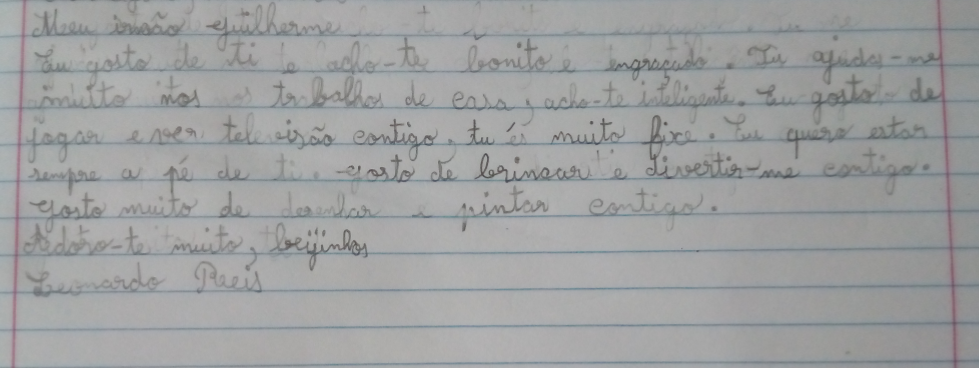 Meu irmão Guilherme
Eu gosto de ti e acho-te bonito e engraçado. Tu ajudas-me
muito nos trabalhos de casa, acho-te inteligente. Eu gosto de
jogar e ver televisão contigo, tu és muito fixe. Eu quero estar
sempre a pé de ti. Gosto de brincar e divertir-me contigo.
Gosto muito de desenhar e pintar contigo.
Adoro-te muito, beijinhos
Leonardo Reis